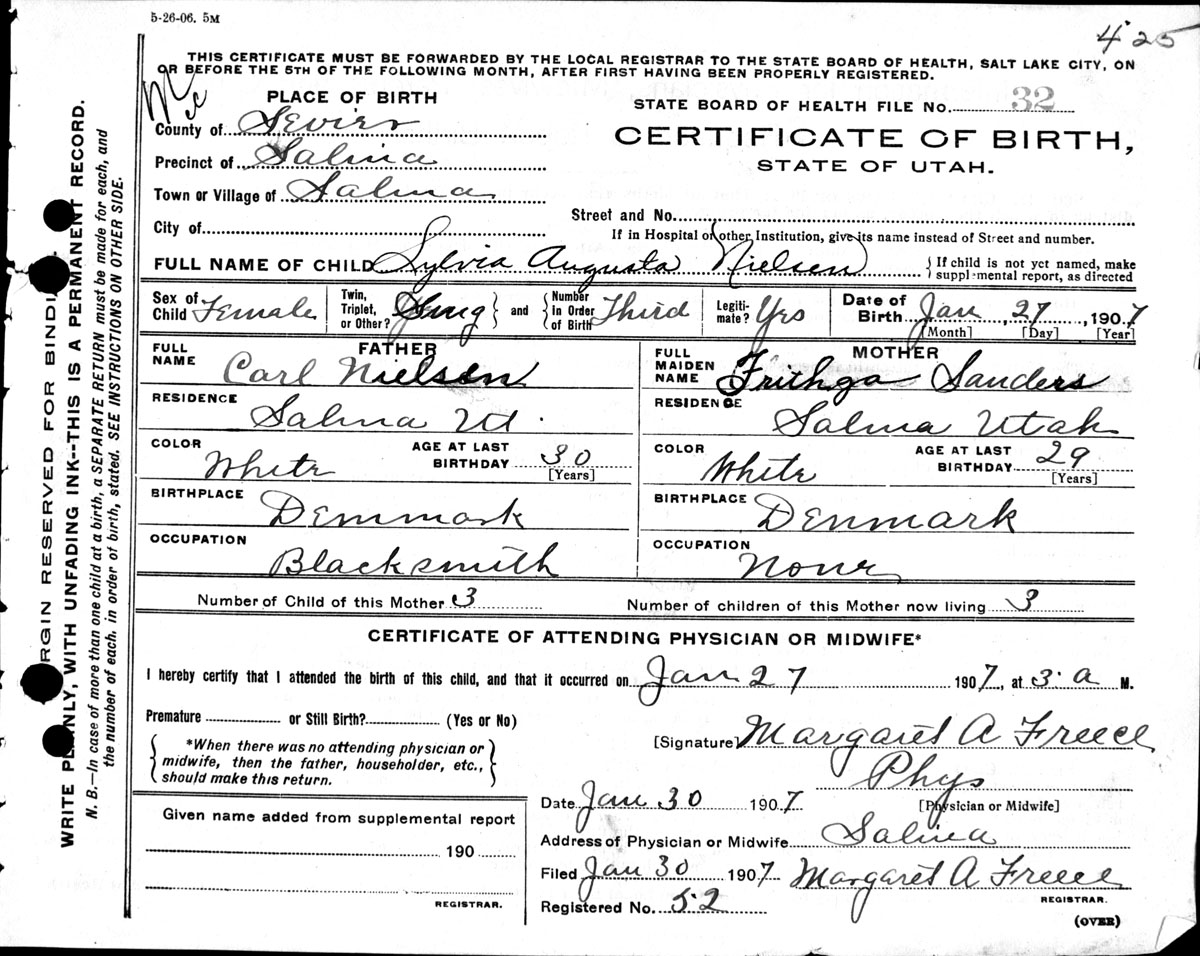 5-26-06. 5M
425
THIS CERTIFICATE MUST BE FORWARDED BY THE LOCAL REGISTRAR TO THE STATE BOARD OF HEALTH, SALT LAKE CITY, ON
OR BEFORE THE 5TH OF THE FOLLOWING MONTH, AFTER FIRST HAVING BEEN PROPERLY REGISTERED.
PLACE OF BIRTH
STATE BOARD OF HEALTH FILE No. 32
County of Sevier
CERTIFICATE OF BIRTH,
Precinct of Salina
STATE OF UTAH.
Town or Village of Salina
Street and No.
City of
If in Hospital or other Institution, give its name instead of Street and number.
FULL NAME OF CHILD Sylvia Augusta Nielsen { If child is not yet named, make
supplemental report, as directed
Sex of Child Female Twin, Triplet, or Other? Sing } and { Number In Order of Birth Third Legiti-mate? Yes Date of Birth Jan, 27, 1907
[Month] [Day] [Year]
FATHER
FULL NAME Carl Nielsen
RESIDENCE
Salina Ut.
COLOR White AGE AT LAST BIRTHDAY 30
[Years]
BIRTHPLACE
Denmark
OCCUPATION
Blacksmith
MOTHER
FULL MAIDEN NAME Frithga Sanders
RESIDENCE
Salina Utah
COLOR White AGE AT LAST BIRTHDAY 29
[Years]
BIRTHPLACE
Denmark
OCCUPATION
None
Number of Child of this Mother 3 Number of children of this Mother now living 3
CERTIFICATE OF ATTENDING PHYSICIAN OR MIDWIFE*
I hereby certify that I attended the birth of this child, and that it occurred on Jan 27 1907, at 3. a M.
Premature or Still Birth? (Yes or No)
*When there was no attending physician or
midwife, then the father, householder, etc.,
should make this return.
[Signature] Margaret A Freece
Phys
[Physician or Midwife]
Date Jan 30 1907
Address of Physician or Midwife Salina
Filed Jan 30 1907 Margaret A Freece
REGISTRAR.
Registered No. 52
(OVER)
Given name added from supplemental report
190
REGISTRAR.
RGIN RESERVED FOR BINDI
WRITE PLAINLY, WITH UNFADING INK--THIS IS A PERMANENT RECORD.
N. B.—In case of more than one child at a birth, a SEPARATE RETURN must be made for each, and
the number of each, in order of birth, stated. SEE INSTRUCTIONS ON OTHER SIDE.